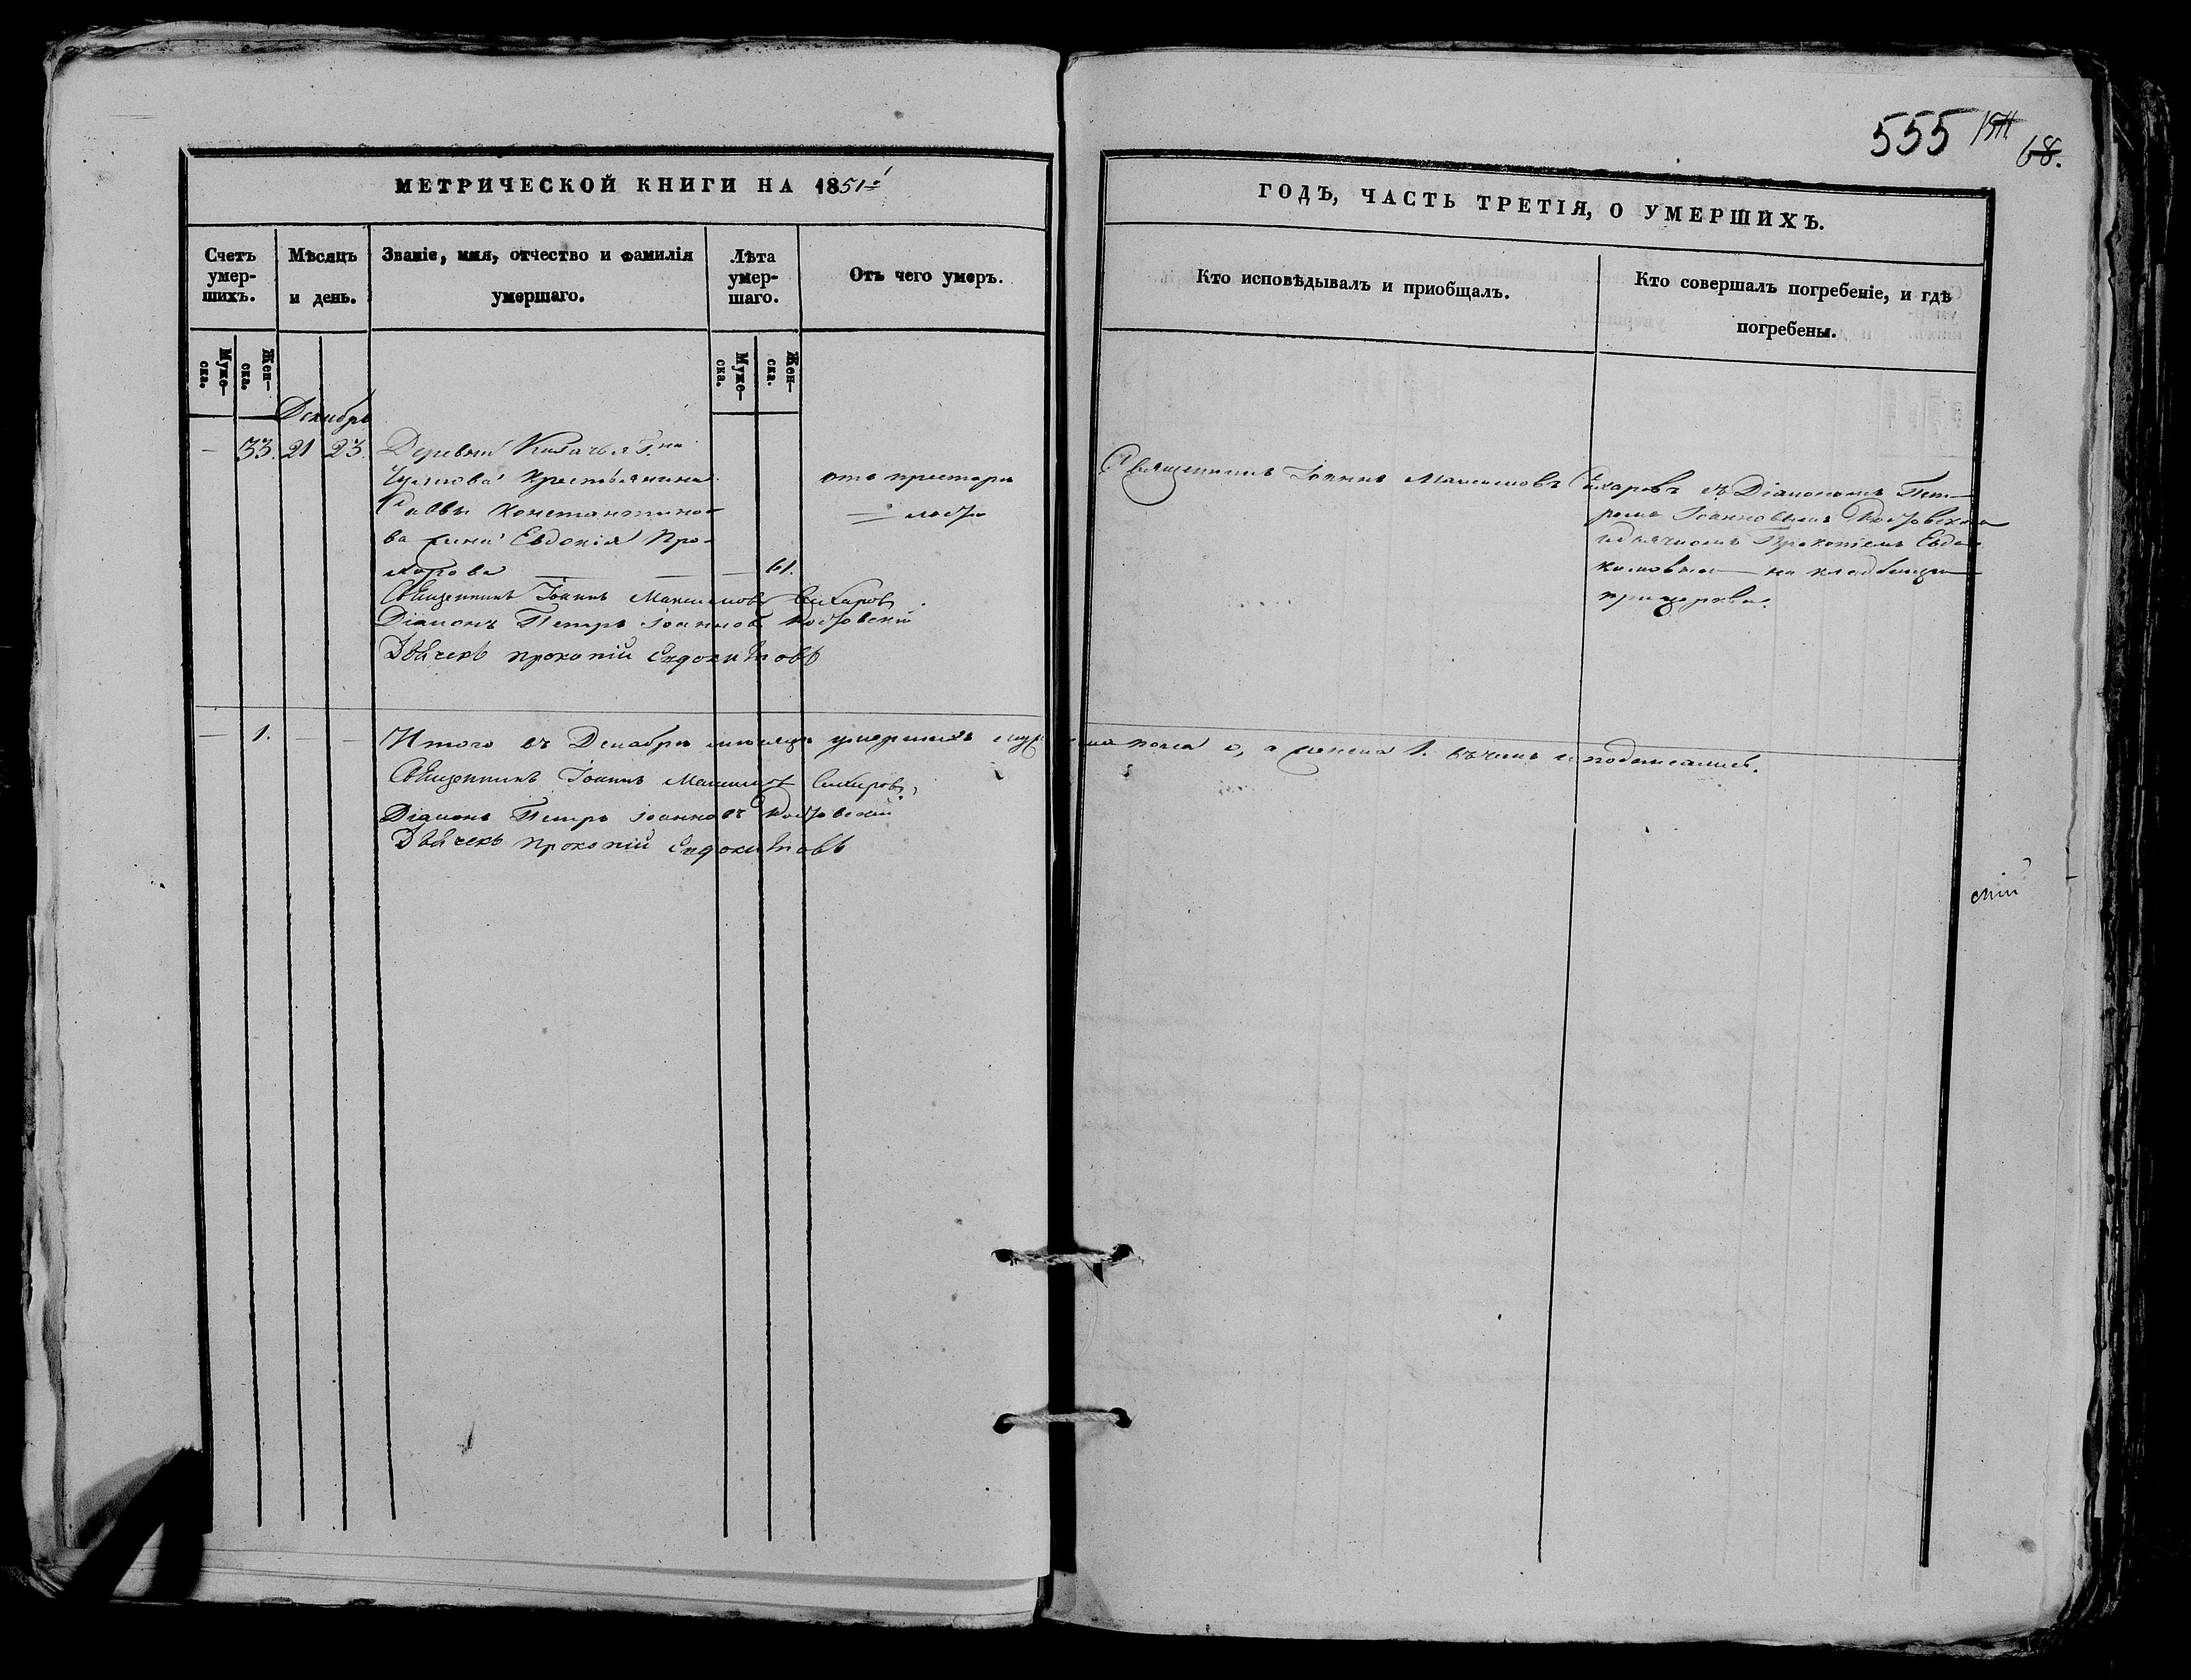 555
68.
МЕТРИЧЕСКОЙ КНИГИ НА 1851й
ГОДЪ, ЧАСТЬ ТРЕТІЯ, О УМЕРШИХЪ.
Счетъ умер-
шихъ.
Мѣсяцъ
и день.
Званіе, имя, отчество и фамилія
умершаго.
Лѣта
умер-
шаго.
Отъ чего умеръ.
Кто исповѣдывалъ и пріобщалъ.
Кто совершалъ погребеніе, и гдѣ
погребены.
Муже-
ска.
Жен-
ска.
Муже-
ска.
Жен-
ска.
Декабрь
— 33. 21 23.
Деревни Казачья Гна
крестьянина
Саввы Константино-
ва жена Евдокія Про-
хорова — — — 61.
отъ престаре
= лости
Священникъ Іоаннъ Максимовъ Сахаровъ съ Діакономъ Пет-
ромъ Іоанновымъ
и дьячкомъ Прокопіемъ Евдо-
кимовымъ — на кладбище
при церкви.
Священникъ Іоаннъ Максимовъ Сахаровъ.
Діаконъ Петръ Іоанновъ
Дьячекъ прокопій Евдокимовъ
— 1. — —
Итого въ Декабрѣ месяцѣ умершихъ мужеска пола 0, а женска 1. въ чемъ и подписались.
Священникъ Іоаннъ Максимовъ Сахаровъ,
Діаконъ Петръ Іоанновъ
Дьячекъ прокопій Евдокимовъ
скій